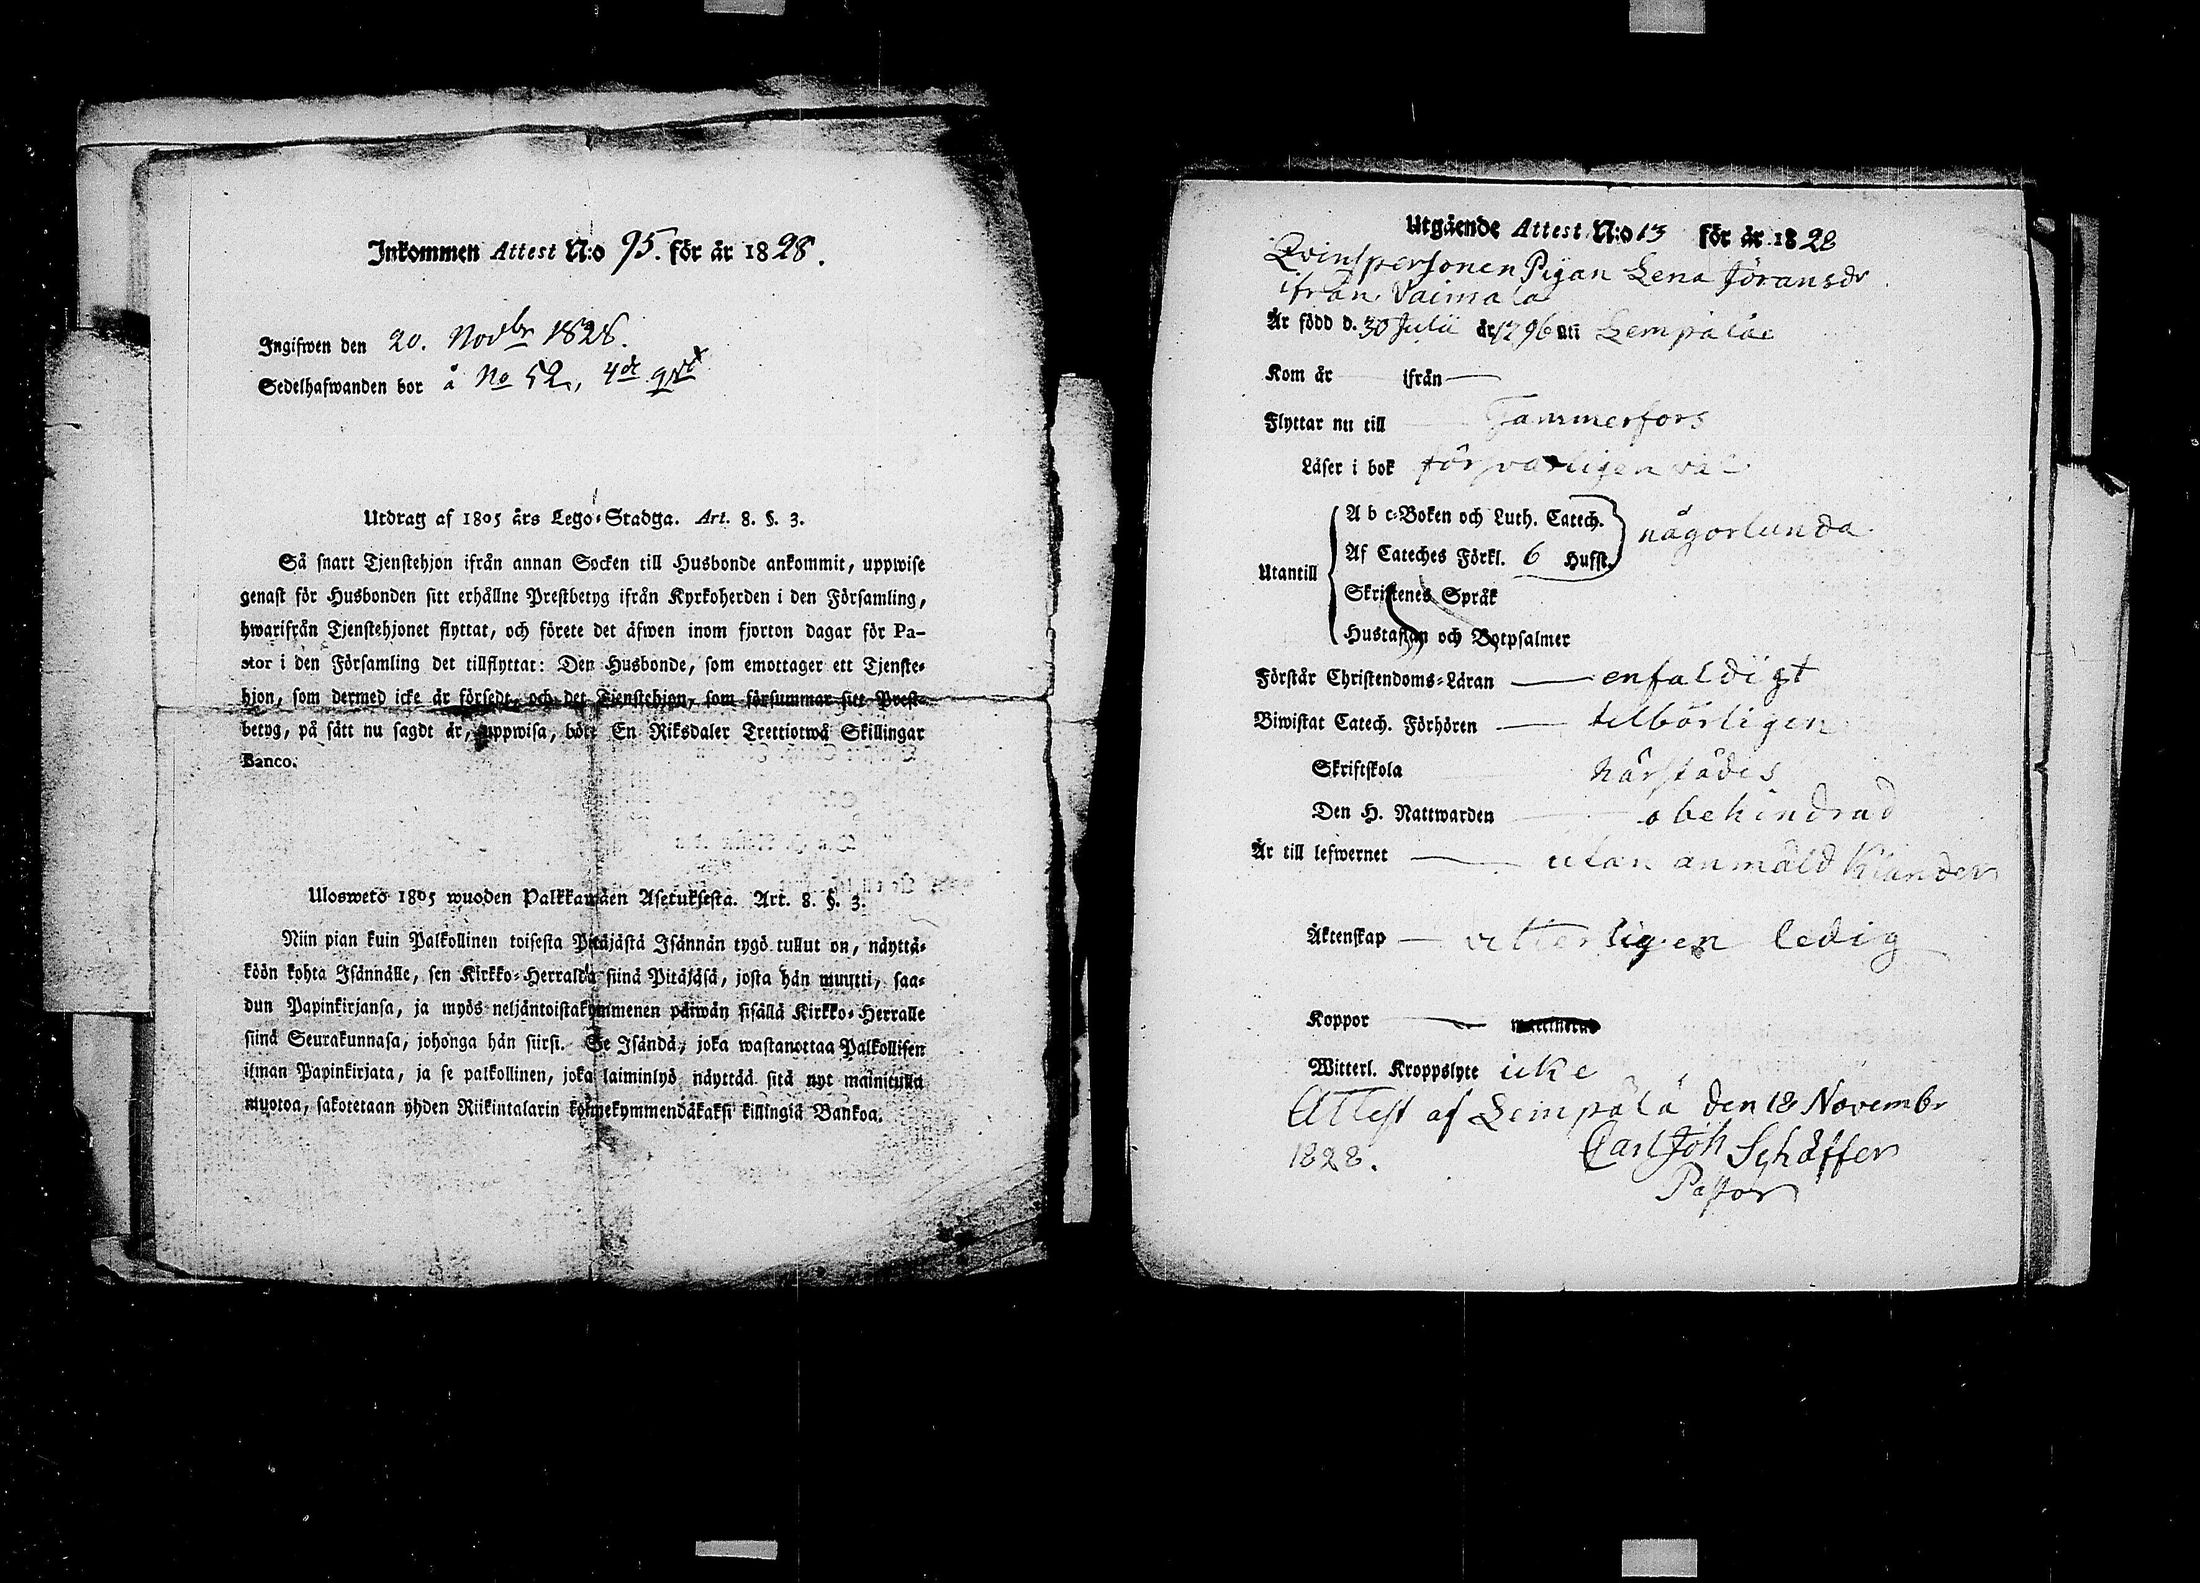 Inkommen Attest N:o 95. för år 1828.
Ingifwen den 20. Novbr 1828.
Sedelhafwanden bor å No 52, 4de qrt
Utdrag af 1805 års Lego-Stadga. Art. 8. §. 3.
Så snart Tjenstehjon ifrån annan Socken till Husbonde ankommit, uppwise
genast för Husbonden sitt erhållne Prestbetyg ifrån Kyrkoherden i den Församling,
hwarifrån Tjenstehjonet flyttat, och förete det äfwen inom fjorton dagar för Pa-
stor i den Församling det tillflyttat: Den Husbonde, som emottager ett Tjenste-
hjon, som dermed icke är försedt, och det Tjenstehjon, som försummar sitt Prest-
betyg, på sätt nu sagdt är, uppwisa, böte En Riksdaler Trettiotwå Skillingar
Banco.
Uloswetö 1805 wuoden Palkkawäen Asetuksesta. Art. 8. §. 3.
Niin pian kuin Palkollinen toisesta Pitäjästä Isännän tygö tullut on, näyttä-
köön kohta Isännälle, sen Kirkko-Herralda siinä Pitäjäsä, josta hän muutti, saa-
dun Papinkirjansa, ja myös neljäntoistakymmenen päiwän sisällä Kirkko-Herralle
siinä Seurakunnasa, johonga hän siirsi. Se Isändä, joka wastanottaa Palkollisen
ilman Papinkirjata, ja se palkollinen, joka laiminlyö näyttää sitä nyt mainitulla
muotoa, sakotetaan yhden Riikintalarin kolmekymmendäkaksi killingiä Bankoa.
Utgående Attest N:o 13 för år 1828
Qvinspersonen Pigan Lena Jöransdr
ifrån Vaimala
Är född d. 30 Julii år 1796 uti Lempälä
Kom år — ifrån —
Flyttar nu till — Tammerfors
Läser i bok försvarligen väl
A b c-Boken och Luth. Catech.
Af Cateches Förkl. 6 Hufst. någorlunda
Utantill
Skriftenes Språk
Hustaflan och Botpsalmer
Förstår Christendoms-Läran — enfaldigt
Biwistat Catech. Förhören — tilbörligen
Skriftskola — härstädes
Den H. Nattwarden — obehindrad
Är till lefwernet — utan anmäld klander
Äktenskap — vetterligen ledig
Koppor —
Witterl. Kroppslyte icke
Attest af Lempälä den 18 Novembr
1828. Carl Joh Schäffer
Pastor